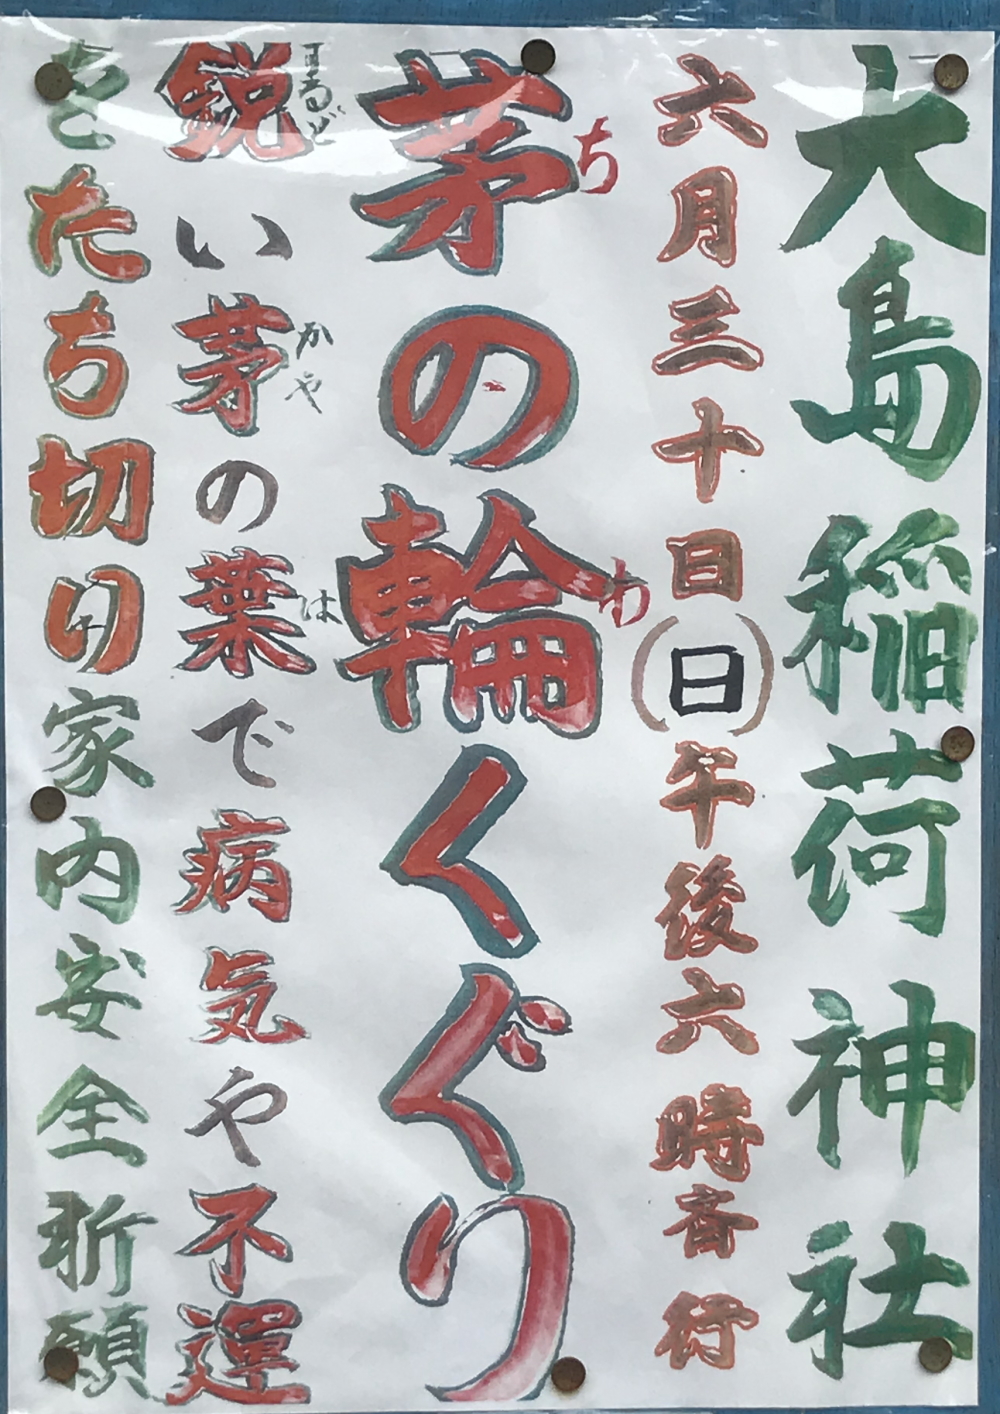 大島稲荷神社
六月三十日(日)午後六時斉行
茅の輪くぐり
ち
わ
鋭い茅の葉で病気や不運
するど
かや
は
をたち切り家内安全祈願